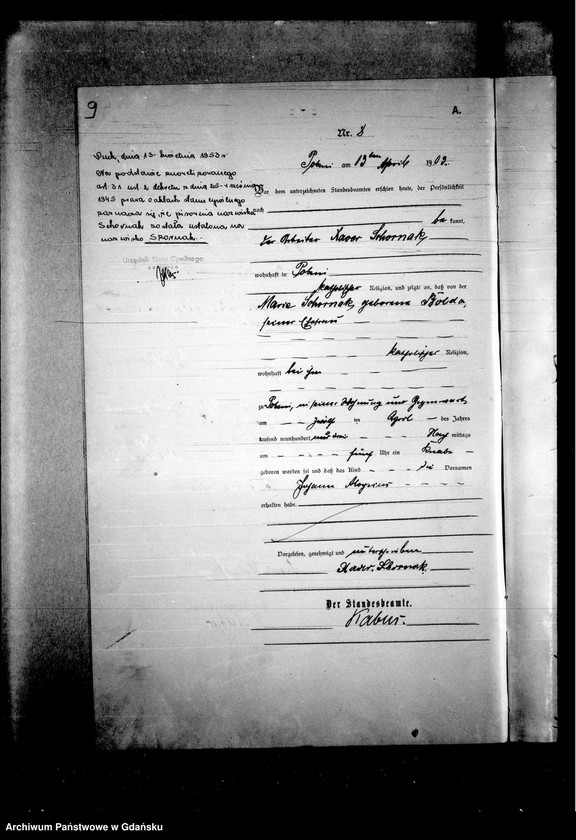 9
A.
Nr. 8
Puck, dnia 13 kwietnia 1953 r
Na podstawie
art. 31 ust. 2 dekretu z dnia 25
1945 prawo o aktach stanu cywilnego
pisownia nazwiska
Schornak została ustalona na
nazwisko SZORNAK.
Urzędnik Stanu Cywilnego
am 13ten April 1903.
Vor dem unterzeichneten Standesbeamten erschien heute, der Persönlichkeit
nach
be kannt,
der Arbeiter Xaver Schornak,
wohnhaft in
katholischer Religion, und zeigte an, daß von der
Marie Schornak, geborene
seiner Ehefrau
katholischer Religion,
wohnhaft bei ihm
zu in seiner Wohnung und Gegenwart
am zwölf ten April des Jahres
tausend neunhundert und drei Nach mittags
um fünf Uhr ein Knabe
geboren worden sei und daß das Kind die Vornamen
Johann Aloysius
erhalten habe.
Vorgelesen, genehmigt und unterschrieben
Xaver Schornak.
Der Standesbeamte.
Kabus.
Archiwum Państwowe w Gdańsku